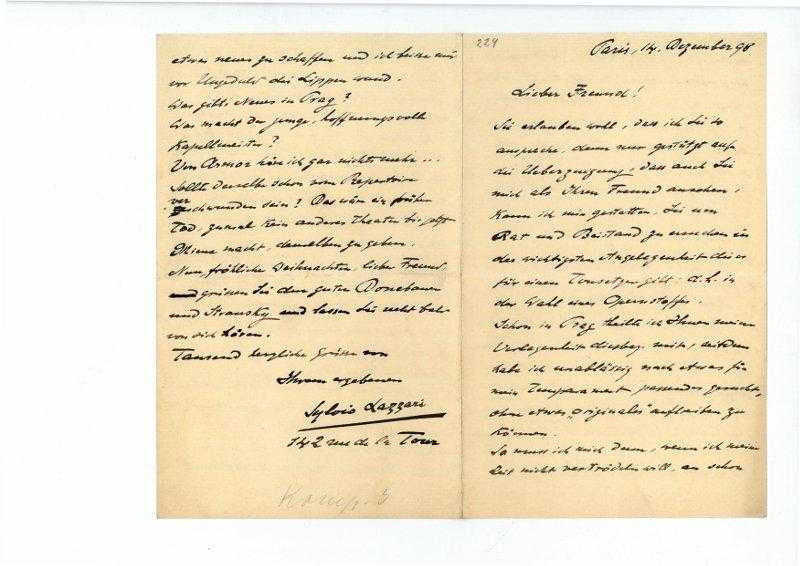 224
Paris, 14. Dezember 98
Lieber Freund!
Sie erlauben wohl, dass ich Sie so
anspreche, denn nur gestützt auf
die Ueberzeugung, dass auch Sie
mich als Ihren Freund ansehen,
kann ich mir gestatten, Sie um
Rat und Beistand zu ersuchen in
der wichtigsten Angelegenheit die es
für einen Tonsetzer gibt - d. h. in
der Wahl eines Opernstoffes.
Schon in Prag theilte ich Ihnen meine
Verlegenheit diesbez. mit, seitdem
habe ich unablässig nach etwas für
mein Temperament passendes gesucht,
ohne etwas „originales" auftreiben zu
können.
So muss ich mich denn, wenn ich meine
Zeit nicht vertrödeln will, an schon
etwas neues zu schaffen und ich beisse mir
vor Ungeduld die Lippen wund.
Was gibts Neues in Prag?
Was macht der junge, hoffnungsvolle
Kapellmeister?
Von Armor höre ich gar nichts mehr...
Sollte derselbe schon vom Repertoire
verschwunden sein? Das wäre ein früher
Tod, zumal kein anderes Theater bis jetzt
Miene macht, denselben zu geben.
Nun, fröhliche Weihnachten, lieber Freund
und grüssen Sie den guten Donebauer
und Stransky und lassen Sie recht bald
von sich hören.
Tausend herzliche Grüsse von
Ihrem ergebenen
Sylvio Lazzari
142 rue de la Tour
Komp. 3